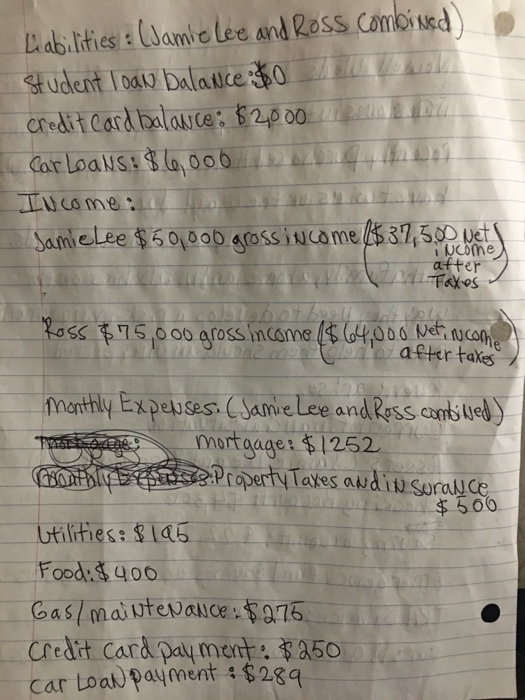 Liabilities: (Jamie Lee and Ross combined)
Student loan balance: $0
credit card balance: $2,000
Car Loans: $6,000
Income:
Jamie Lee $50,000 gross income ($37,500 Net
income
after
Taxes)
Ross $75,000 gross income ($64,000 Net income
after taxes)
Monthly Expenses: (Jamie Lee and Ross combined)
mortgage: $1252
Property Taxes and insurance
$500
Utilities: $195
Food: $400
Gas/maintenance: $275
Credit card payment: $250
car Loan payment: $289